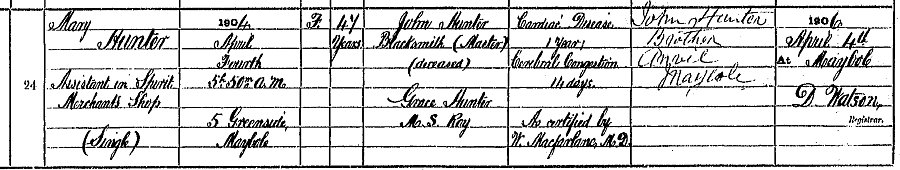 24
Mary
Hunter
Assistant in Spirit
Merchants Shop
(Single)
1904
April
Fourth
5h. 50m a.m.
5 Greenside,
Maybole
F.
47
Years
John Hunter
Blacksmith (Master)
(deceased)
Grace Hunter
M. S. Roy
Cardiac Disease
1 Year;
Cerebral Congestion
14 days.
As certified by
W. Macfarlane, M.D.
John Hunter
Brother
Maybole
April 4th
At Maybole
D. Watson,
Registrar.